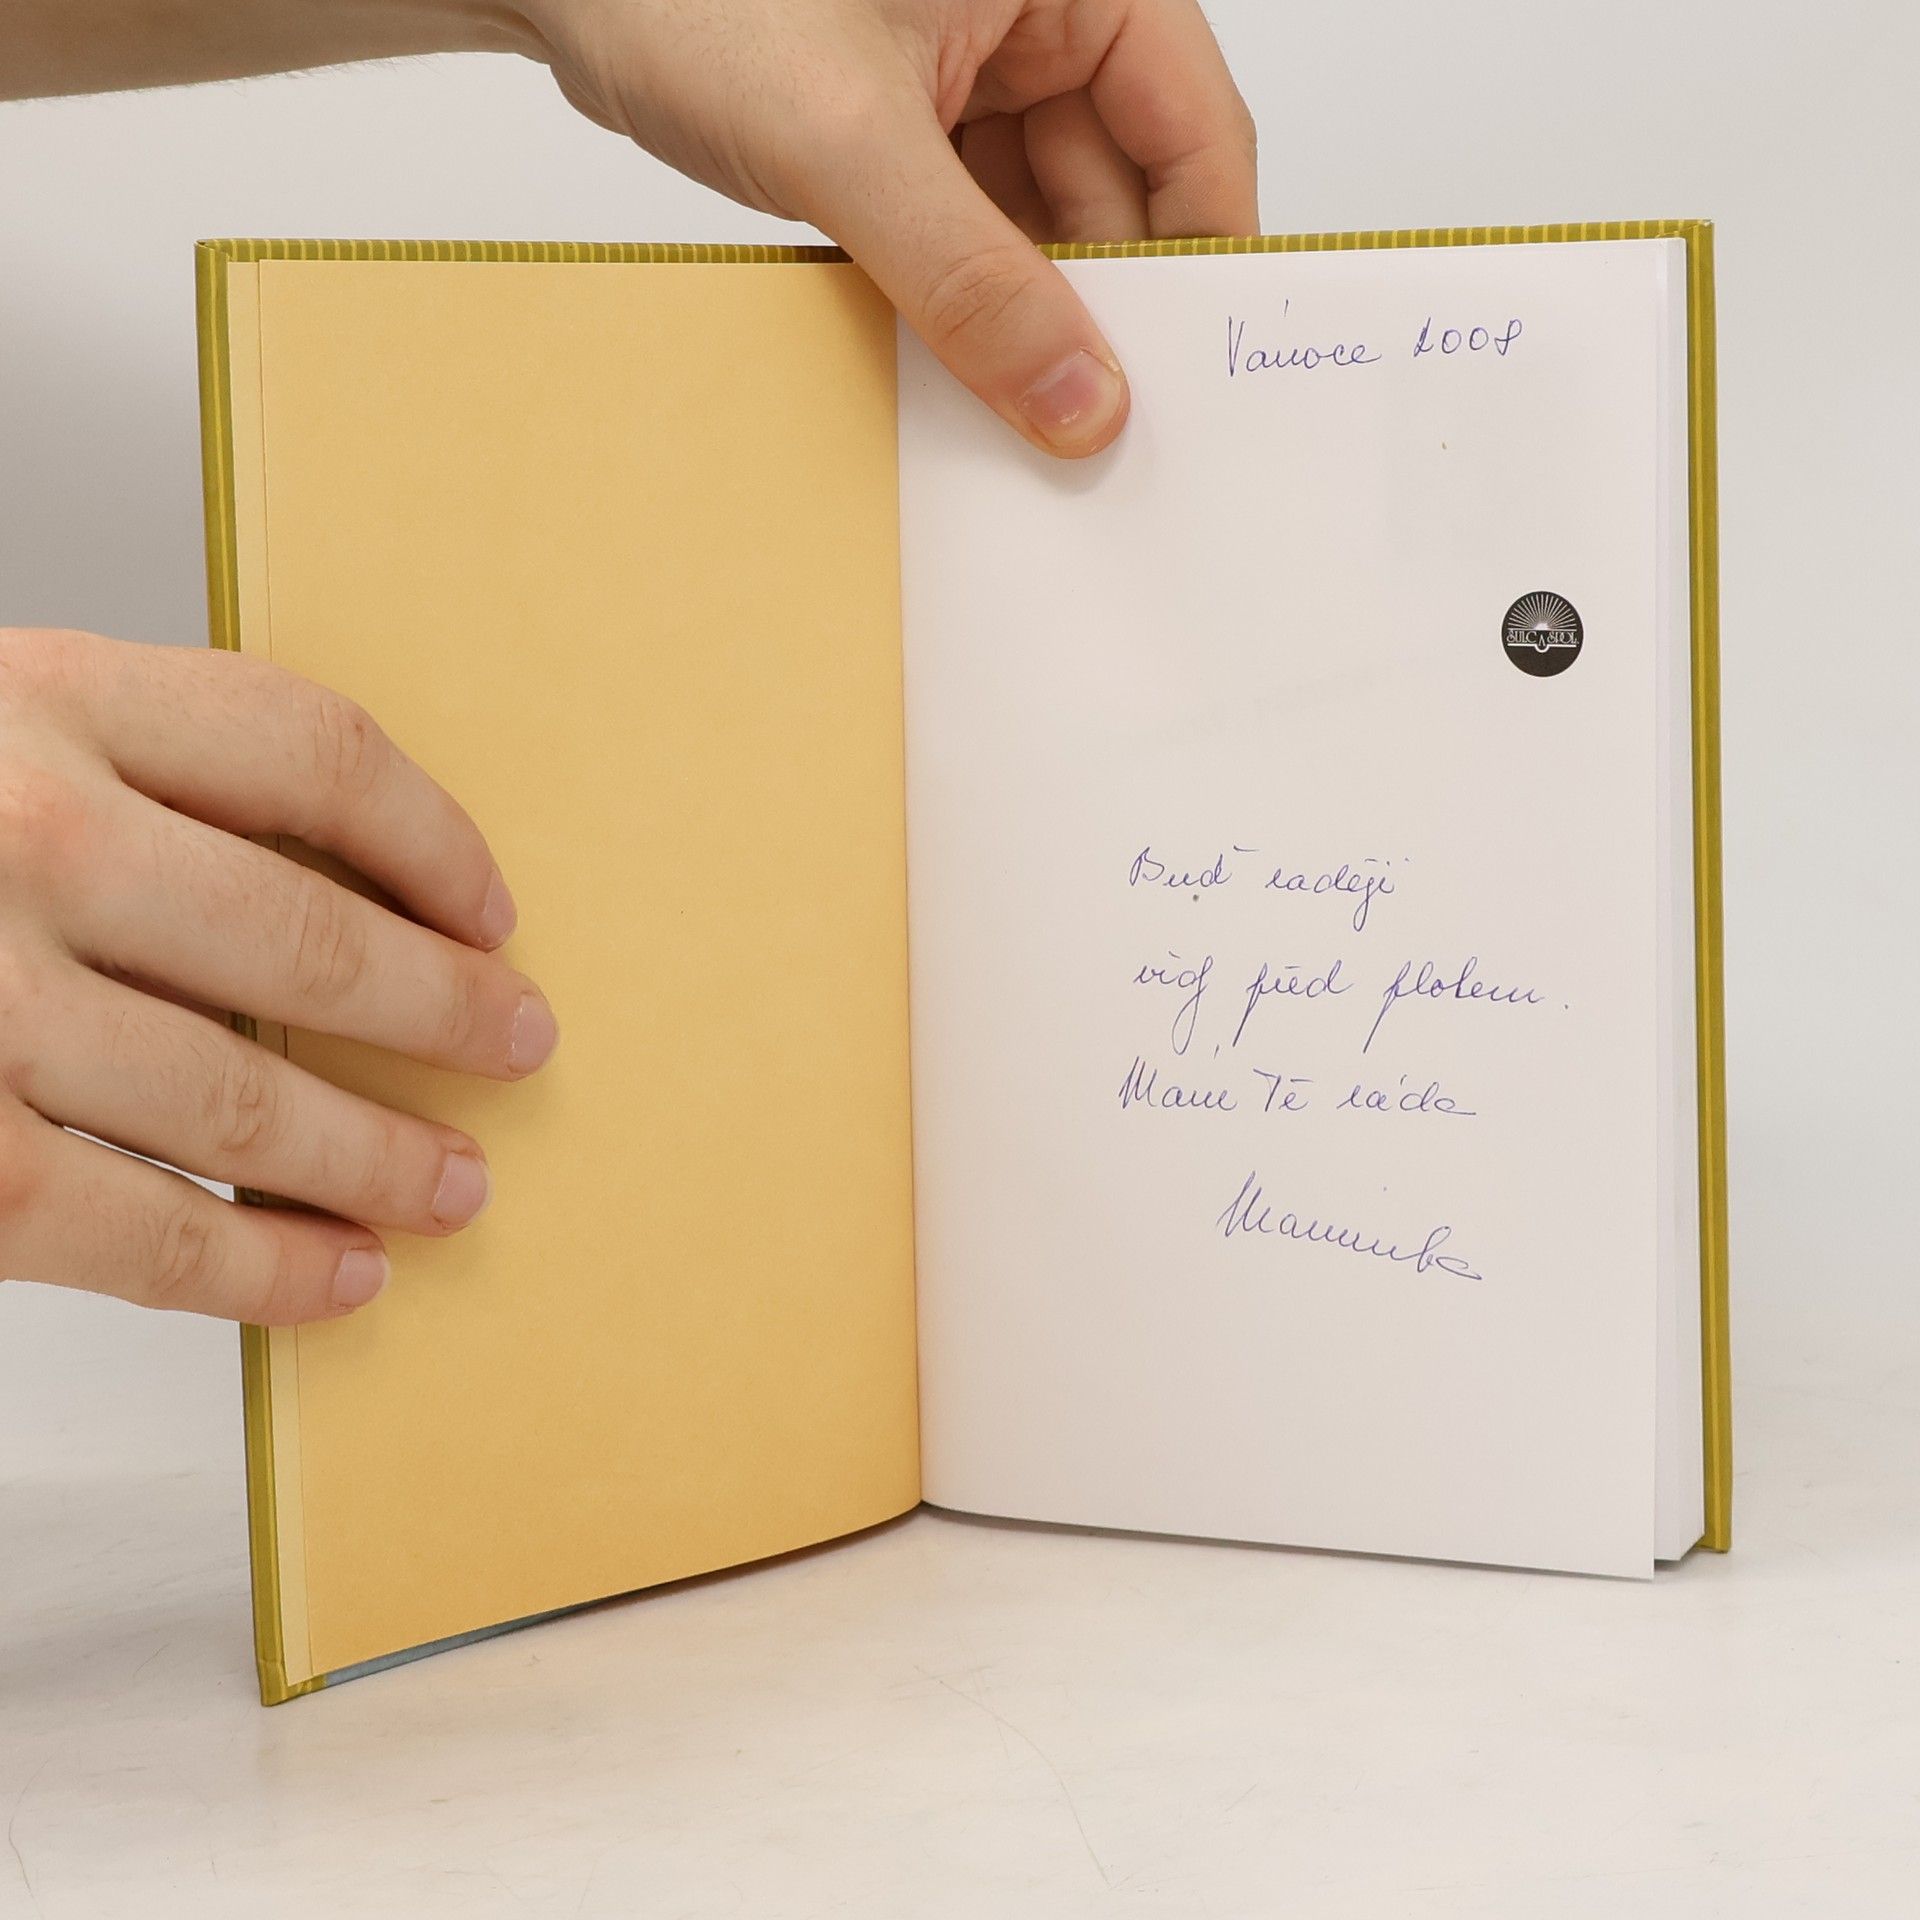 Vánoce 2008
ŠULC A SPOL.
Buď raději
vždy před plotem.
Mám Tě ráda
Maminka